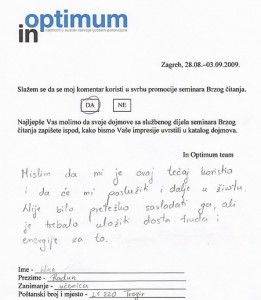 optimum
in
Zagreb, 28.08.-03.09.2009.
Slažem se da se moj komentar koristi u svrhu promocije seminara Brzog čitanja.
DA NE
Najljepše Vas molimo da svoje dojmove sa službenog dijela seminara Brzog
čitanja zapišete ispod, kako bismo Vaše impresije uvrstili u katalog dojmova.
In Optimum team
Mislim da mi je ovaj tečaj koristio
i da će mi poslužiti i dalje u životu.
Nije bilo preteško savladati ga, ali
je trebalo uložiti dosta truda i
energije za to.
Ime -
Prezime - Radun
Zanimanje - učenica
Poštanski broj i mjesto - 21 220 Trogir